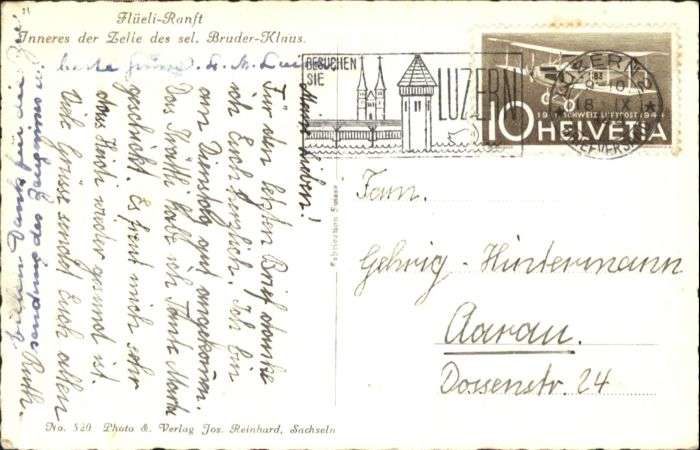 Flüeli-Ranft
Inneres der Zelle des sel. Bruder-Klaus.
BESUCHEN
SIE
LUZERN
LUZERN
16. IX
1919 SCHWEIZ LUFTPOST 1944
10 HELVETIA
Meine Lieben!
Für den letzten Brief danke
ich Euch herzlich. Ich bin
am Dienstag gut angekommen.
Das Sträßli habe ich Tante Martha
geschickt. Es freut mich sehr
dass Hedi wieder gesund ist.
Viele Grüsse sendet Euch allen
Ruth.
Vielen Dank für die Zu-
sendung des Zeugnisses u.
Fam.
Gehrig-Hintermann
Aarau.
Dossenstr. 24
No. 520 Photo & Verlag Jos. Reinhard, Sachseln